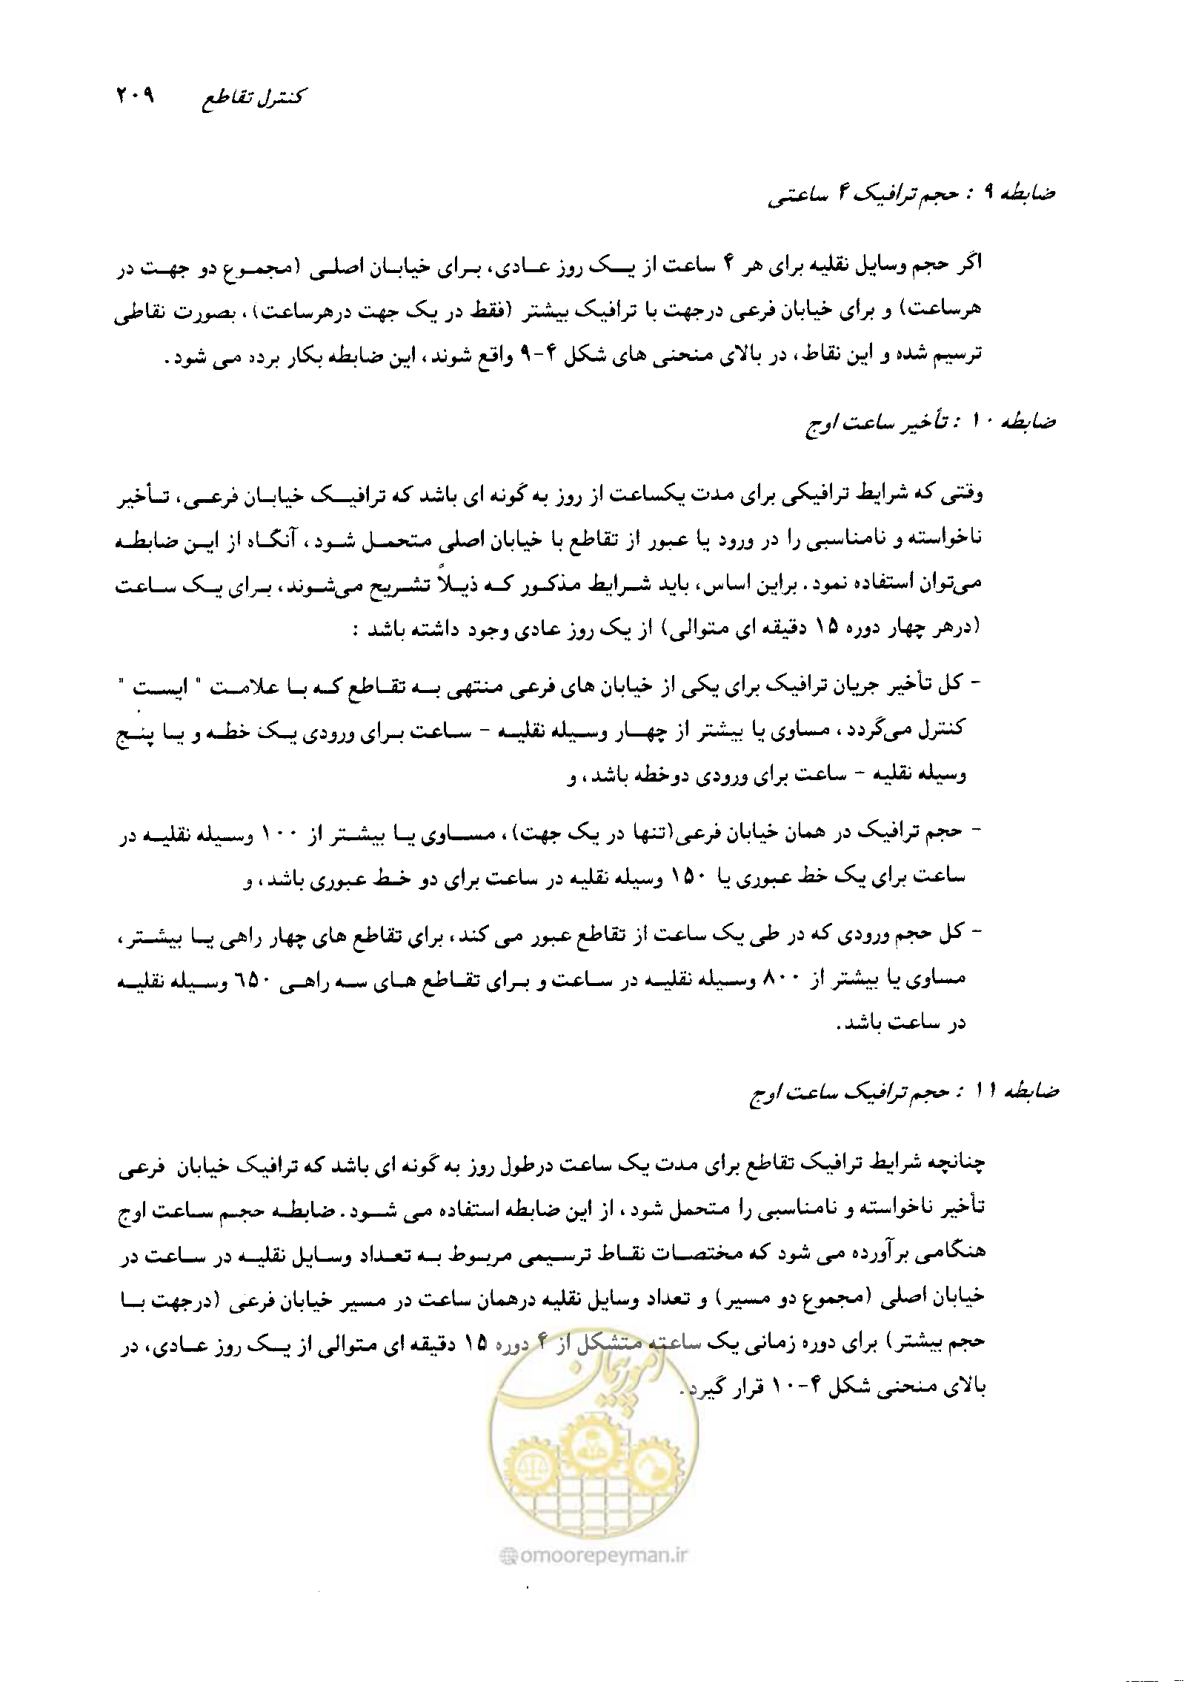 کنترل تقاطع ۲۰۹
ضابطه ۹ : حجم ترافیک ۴ ساعتی
اگر حجم وسایل نقلیه برای هر ۴ ساعت از یک روز عادی، برای خیابان اصلی (مجموع دو جهت در
هرساعت) و برای خیابان فرعی درجهت با ترافیک بیشتر (فقط در یک جهت درهرساعت)، بصورت نقاطی
ترسیم شده و این نقاط، در بالای منحنی های شکل ۴-۹ واقع شوند، این ضابطه بکار برده می شود.
ضابطه ۱۰ : تأخیر ساعت اوج
وقتی که شرایط ترافیکی برای مدت یکساعت از روز به گونه ای باشد که ترافیک خیابان فرعی، تأخیر
ناخواسته و نامناسبی را در ورود یا عبور از تقاطع با خیابان اصلی متحمل شود، آنگاه از این ضابطه
می‌توان استفاده نمود. براین اساس، باید شرایط مذکور که ذیلاً تشریح می‌شوند، برای یک ساعت
(درهر چهار دوره ۱۵ دقیقه ای متوالی) از یک روز عادی وجود داشته باشد :
- کل تأخیر جریان ترافیک برای یکی از خیابان های فرعی منتهی به تقاطع که با علامت " ایست "
کنترل می‌گردد، مساوی یا بیشتر از چهار وسیله نقلیه - ساعت برای ورودی یک خطه و یا پنج
وسیله نقلیه - ساعت برای ورودی دوخطه باشد، و
- حجم ترافیک در همان خیابان فرعی(تنها در یک جهت)، مساوی یا بیشتر از ۱۰۰ وسیله نقلیه در
ساعت برای یک خط عبوری یا ۱۵۰ وسیله نقلیه در ساعت برای دو خط عبوری باشد، و
- کل حجم ورودی که در طی یک ساعت از تقاطع عبور می کند، برای تقاطع های چهار راهی یا بیشتر،
مساوی یا بیشتر از ۸۰۰ وسیله نقلیه در ساعت و برای تقاطع های سه راهی ۶۵۰ وسیله نقلیه
در ساعت باشد.
ضابطه ۱۱ : حجم ترافیک ساعت اوج
چنانچه شرایط ترافیک تقاطع برای مدت یک ساعت درطول روز به گونه ای باشد که ترافیک خیابان فرعی
تأخیر ناخواسته و نامناسبی را متحمل شود، از این ضابطه استفاده می شود. ضابطه حجم ساعت اوج
هنگامی برآورده می شود که مختصات نقاط ترسیمی مربوط به تعداد وسایل نقلیه در ساعت در
خیابان اصلی (مجموع دو مسیر) و تعداد وسایل نقلیه درهمان ساعت در مسیر خیابان فرعی (درجهت با
حجم بیشتر) برای دوره زمانی یک ساعته متشکل از ۴ دوره ۱۵ دقیقه ای متوالی از یک روز عادی، در
بالای منحنی شکل ۴-۱۰ قرار گیرد.
امور پیمان
@omoorepeyman.ir